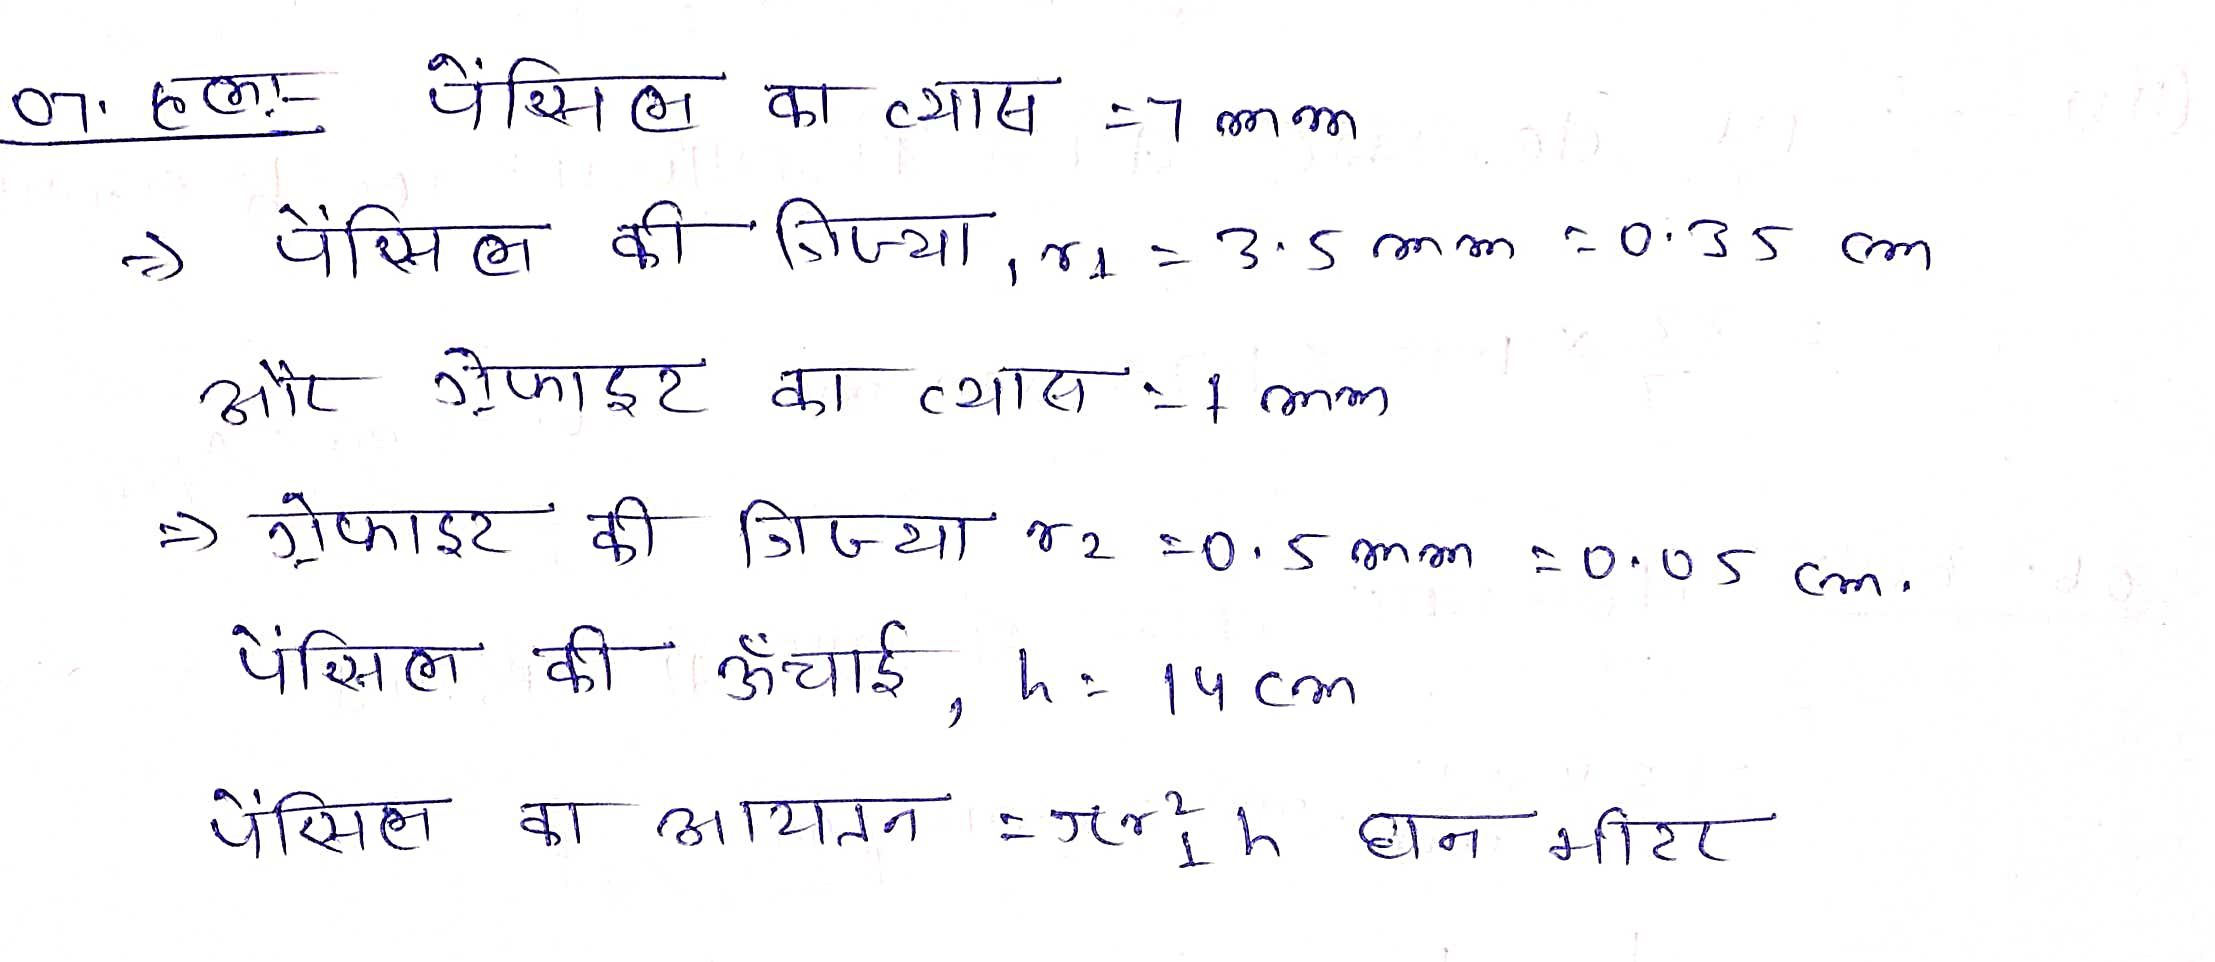 07. हल:- पेंसिल का व्यास = 7 mm
=> पेंसिल की त्रिज्या, r₁ = 3.5 mm = 0.35 cm
और ग्रेफाइट का व्यास = 1 mm
=> ग्रेफाइट की त्रिज्या r₂ = 0.5 mm = 0.05 cm.
पेंसिल की ऊँचाई, h = 14 cm
पेंसिल का आयतन = πr₁²h घन मीटर